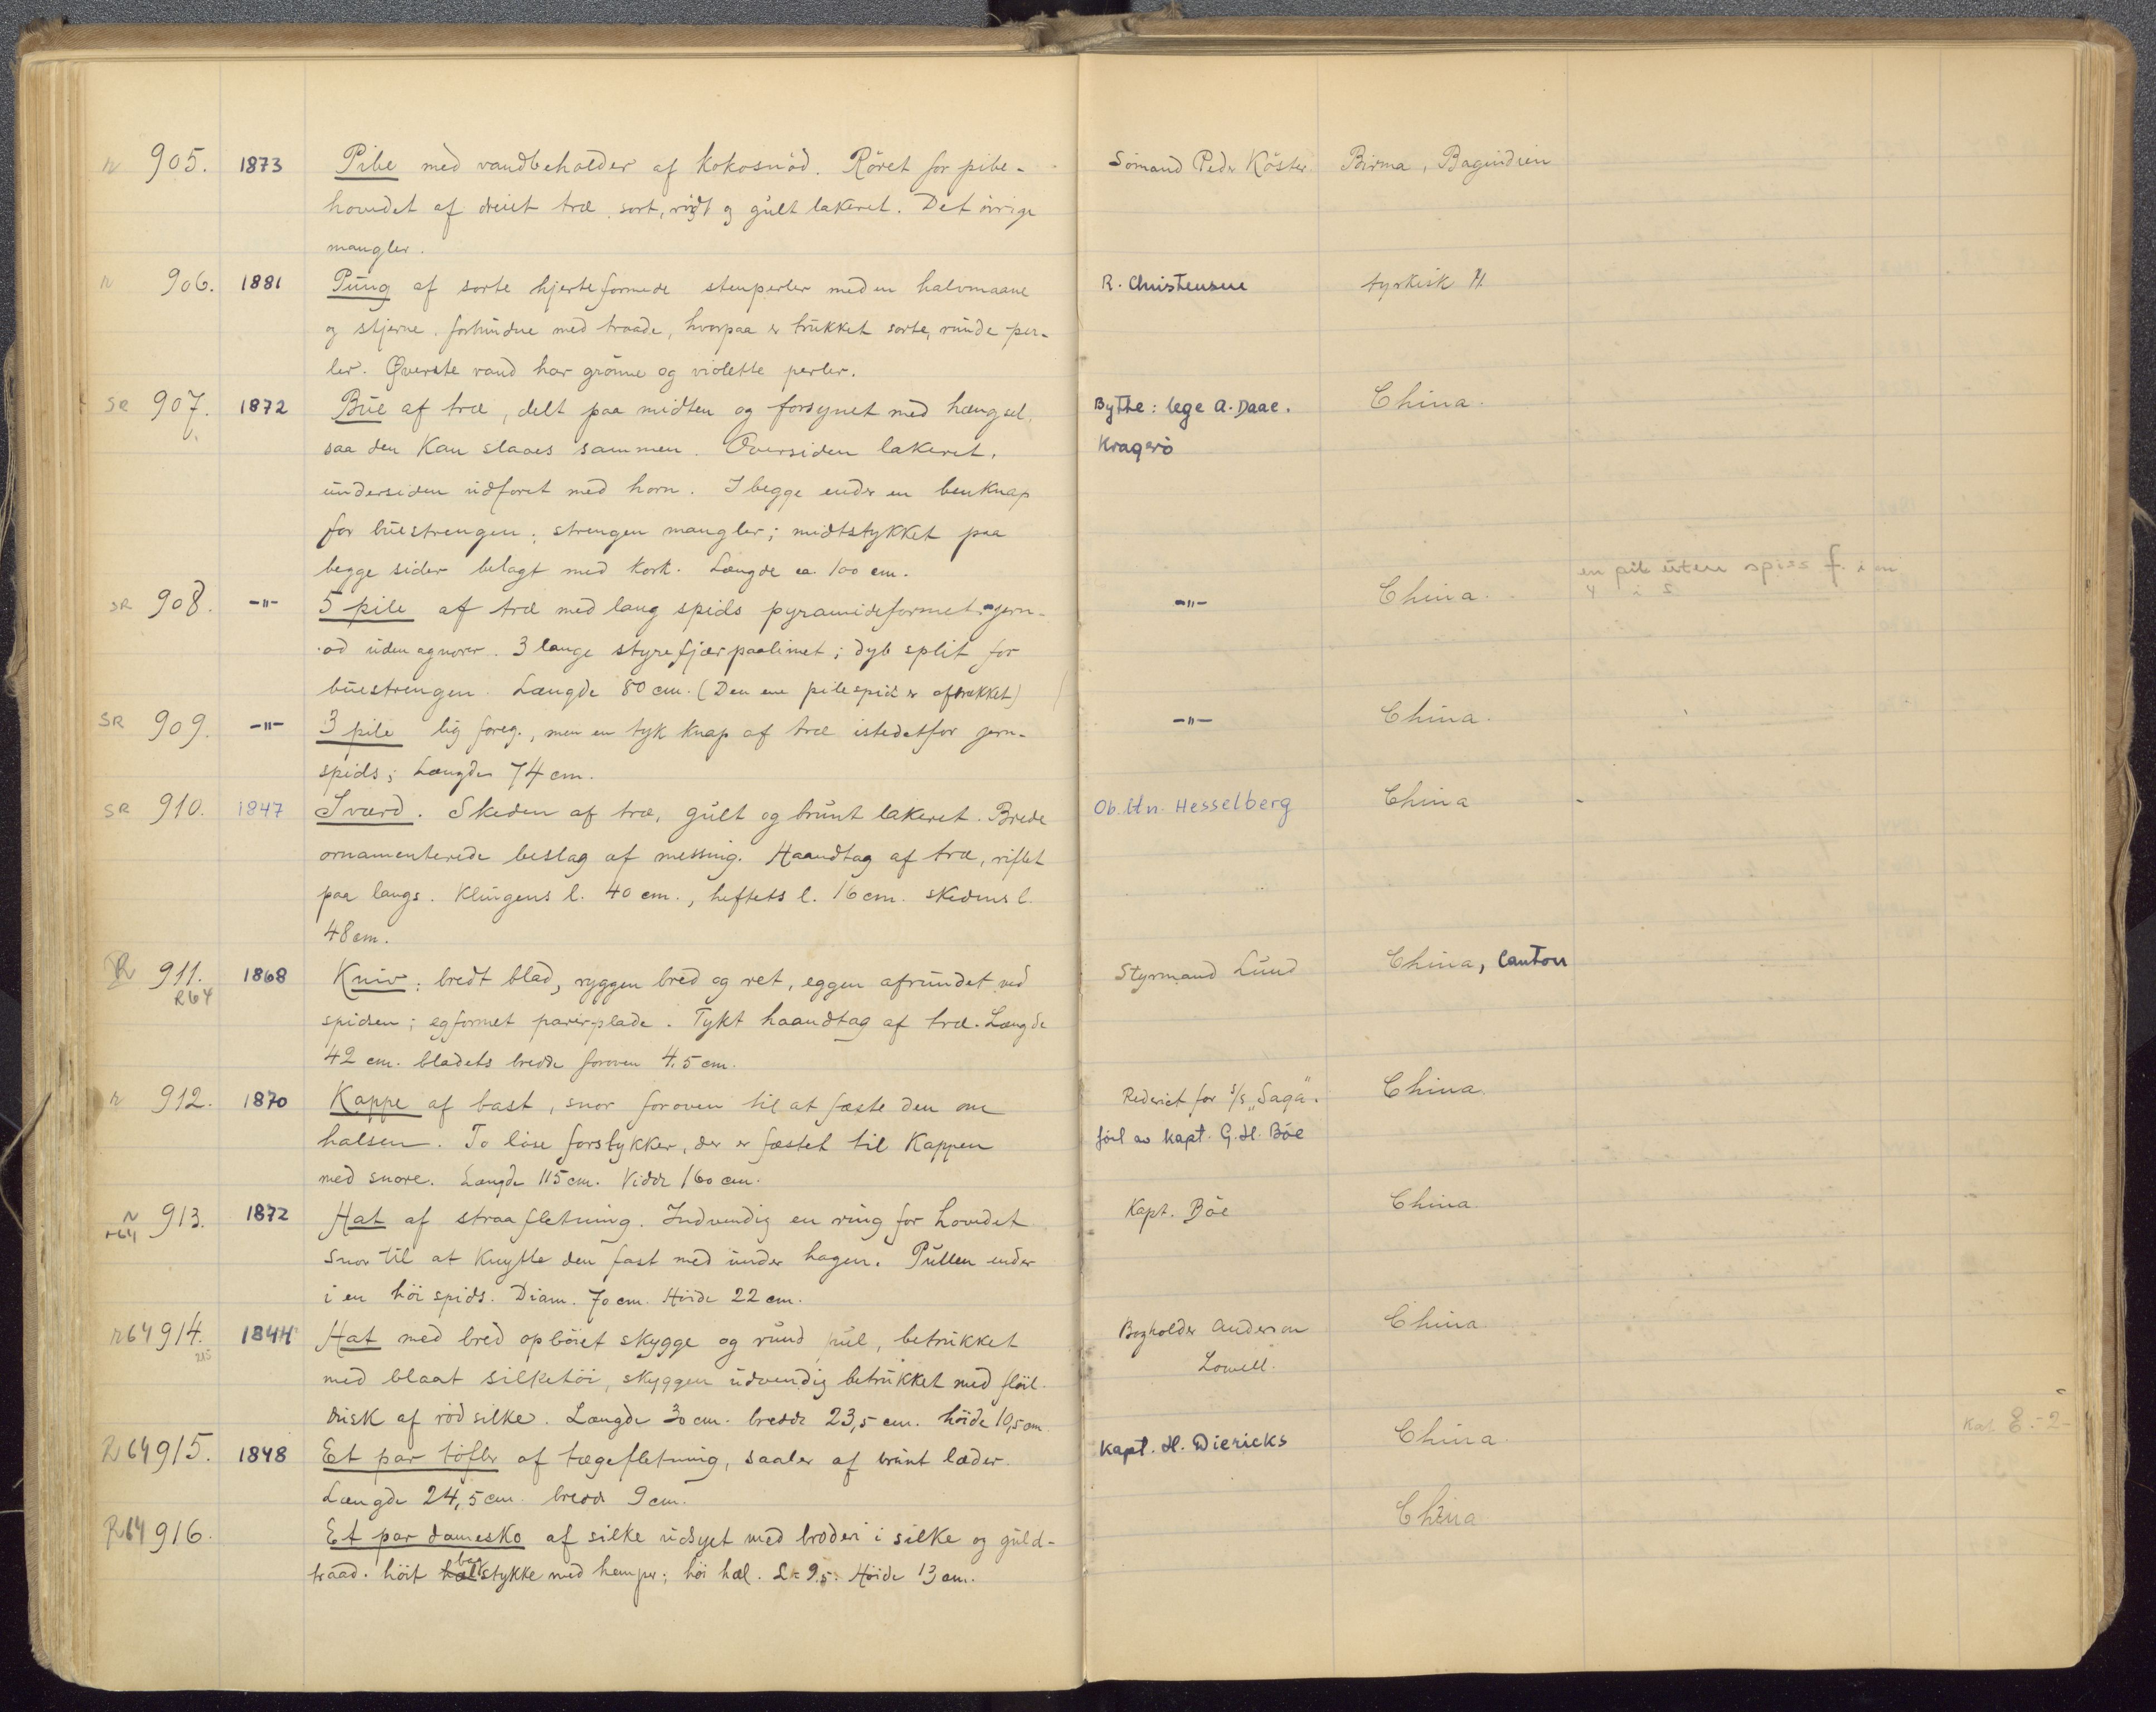 r 905. 1873 Pibe med vandbeholder af kokosnöd. Röret for pibe- Sömand Peder Köster Birma, Bagindien
hovedet af dreiet træ, sort, rödt og gult lakeret. Det övrige
mangler.
r 906. 1881 Pung af sorte hjerteformede stenperler med en halvmaane R. Christensen tyrkisk
og stjerne, forbundne med traade, hvorpaa er trukket sorte, runde per-
ler. Øverste rand har grönne og violette perler.
SR 907. 1872 Bue af træ, delt paa midten og forsynet med hængsel, Bytte: lege A. Daae. China.
saa den kan slaaes sammen. Oversiden lakeret, Kragerö
undersiden udforet med horn. I begge ender en benknap
for buestrengen; strengen mangler; midtstykket paa
begge sider belagt med kork. Længde ca. 100 cm.
en pil uten spiss f. i m
SR 908. -"- 5 pile af træ med lang spids pyramideformet jern- -"- China. 4 i S
od uden agnorer. 3 lange styrefjær paalimet; dyb split for
buestrengen. Længde 80 cm. (Den ene pilespids er afbrækket)
SR 909. -"- 3 pile lig foreg., men en tyk knap af træ istedetfor jern- -"- China.
spids; Længde 74 cm.
SR 910. 1847 Sværd. Skeden af træ, gult og brunt lakeret. Brede Ob. ltn. Hesselberg China
ornamenterede beslag af messing. Haandtag af træ, riflet
paa langs. Klingens l. 40 cm., heftets l. 16 cm. skedens l.
48 cm.
R 911. 1868 Kniv; bredt blad, ryggen bred og ret, eggen afrundet ved Styrmand Lund China, Canton
R64
spidsen; egformet parerplade. Tykt haandtag af træ. Længde
42 cm. bladets bredde foroven 4,5 cm.
r 912. 1870 Kappe af bast, snor foroven til at fæste den om Rederiet for s/s „Saga". China.
halsen. To löse forstykker, der er fæstet til Kappen förl av kapt. G. H. Böe
med snore. Længde 115 cm. Vidde 160 cm.
r 913. 1872 Hat af straafletning. Indvendig en ring for hovedet Kapt. Böe China.
r64
Snor til at knytte den fast med under hagen. Pullen ender
i en höi spids. Diam. 70 cm. Höide 22 cm.
r64 914. 1844 Hat med bred opböiet skygge og rund pul, betrukket Bogholder Anderson China
215
med blaat silketöi, skyggen udvendig betrukket med flöil. Lowell.
dusk af röd silke. Længde 30 cm. bredde 23,5 cm. höide 10,5 cm.
R64 915. 1848 Et par töfler af tægefletning, saaler af brunt læder. Kapt. H. Diericks China. Kat. 8.-2-
Længde 24,5 cm. bredde 9 cm.
R64 916. Et par damesko af silke udsyet med broderi i silke og guld- China
traad. höit bagstykke med hemper; höi hæl. L= 9,5. Höide 13 cm.